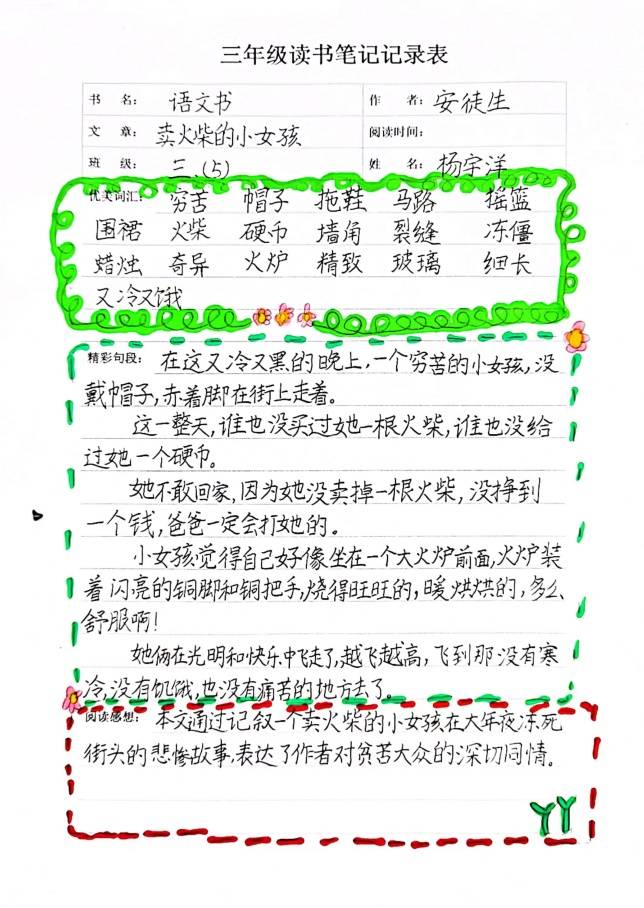 三年级读书笔记记录表
书 名： 语文书 作 者： 安徒生
文 章： 卖火柴的小女孩 阅读时间：
班 级： 三.(5) 姓 名： 杨宇洋
优美词汇： 穷苦 帽子 拖鞋 马路 摇篮
围裙 火柴 硬币 墙角 裂缝 冻僵
蜡烛 奇异 火炉 精致 玻璃 细长
又冷又饿
精彩句段： 在这又冷又黑的晚上，一个穷苦的小女孩，没
戴帽子，赤着脚在街上走着。
这一整天，谁也没买过她一根火柴，谁也没给
过她一个硬币。
她不敢回家，因为她没卖掉一根火柴，没挣到
一个钱，爸爸一定会打她的。
小女孩觉得自己好像坐在一个大火炉前面，火炉装
着闪亮的铜脚和铜把手，烧得旺旺的，暖烘烘的，多么
舒服啊！
她俩在光明和快乐中飞走了，越飞越高，飞到那没有寒
冷，没有饥饿，也没有痛苦的地方去了。
阅读感想： 本文通过记叙一个卖火柴的小女孩在大年夜冻死
街头的悲惨故事，表达了作者对贫苦大众的深切同情。